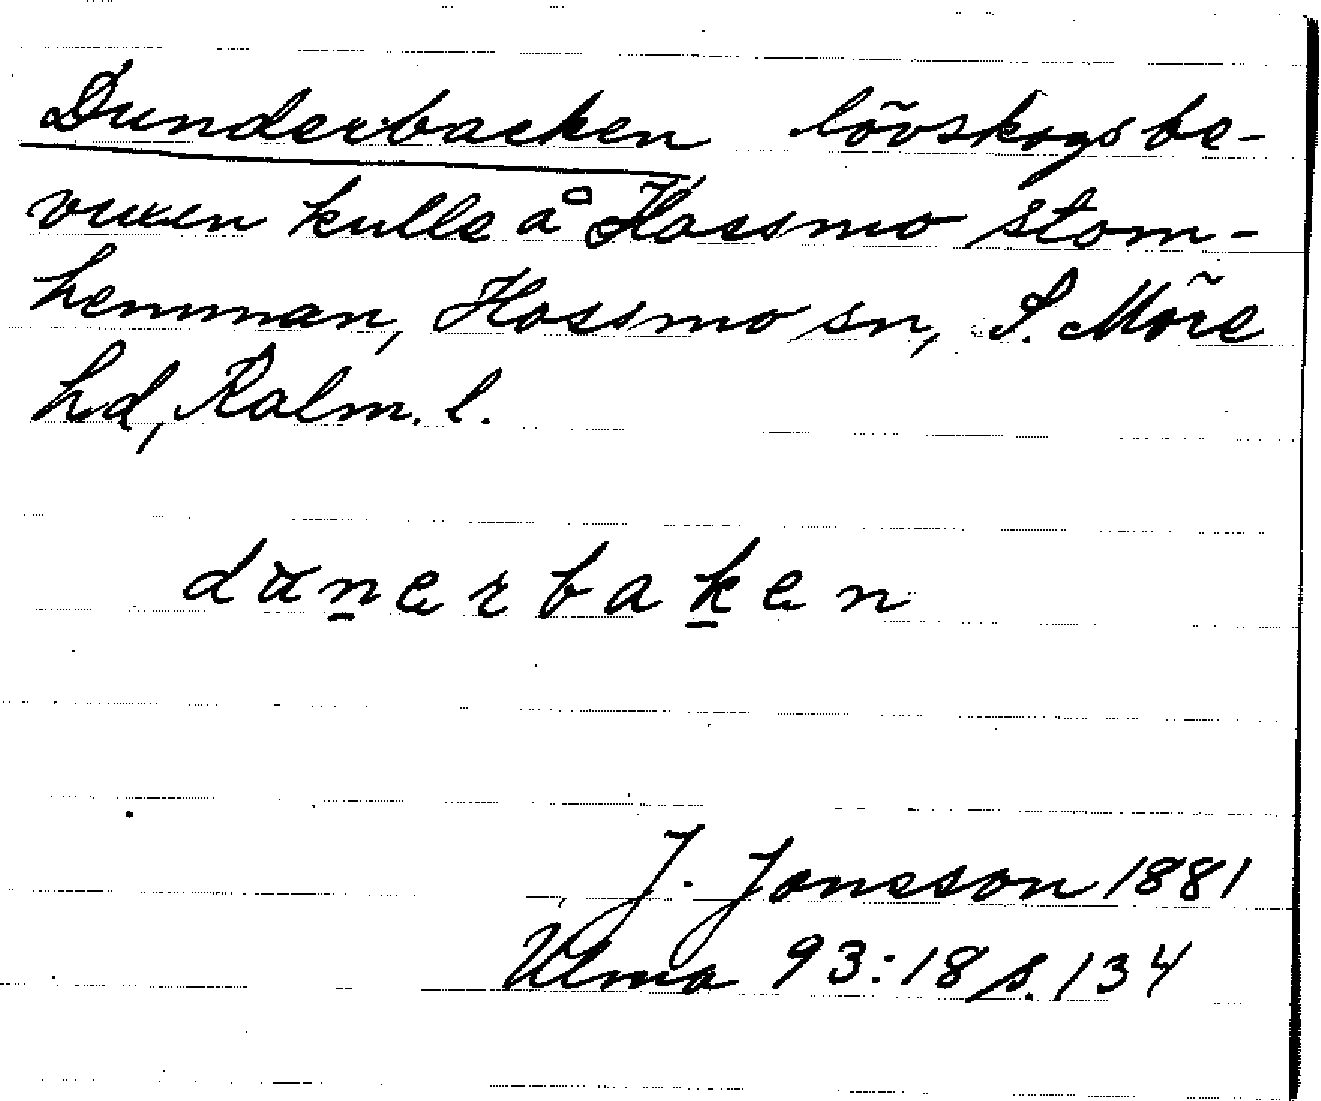 Dunderbacken lövskogsbe-
vuxen kulle å Hossmo stom-
hemman, Hossmo sn, S. Möre
hd, Kalm. l.
dunerbaken
J. Jonsson 1881
Ulma 93:18 s. 134